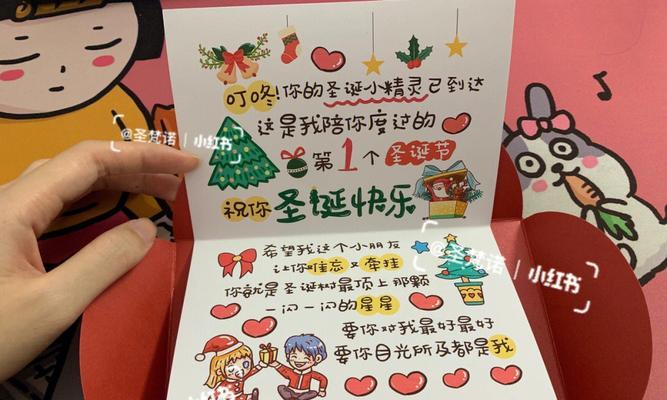 叮咚!你的圣诞小精灵已到达
这是我陪你度过的
第1个 圣诞节
祝你 圣诞快乐
希望我这个小朋友
让你难忘又牵挂
你就是圣诞树最顶上那颗
一闪一闪的星星
要你对我最好最好
要你目光所及都是我
@圣梵诺 | 小红书
@圣梵诺 | 小红书